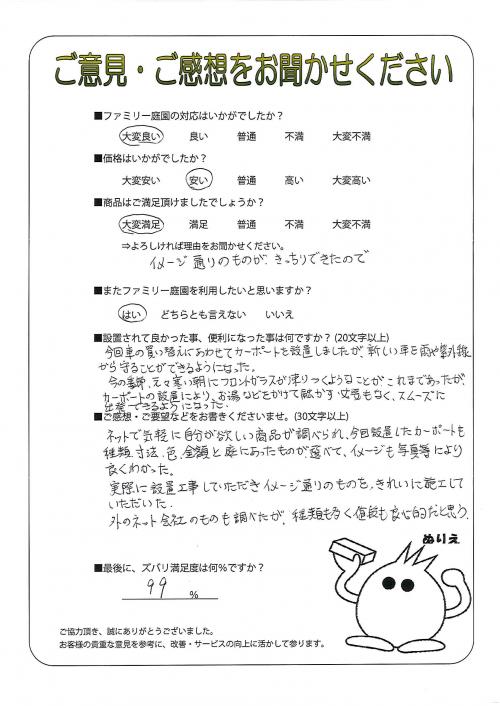 ご意見・ご感想をお聞かせください
■ファミリー庭園の対応はいかがでしたか？
大変良い 良い 普通 不満 大変不満
■価格はいかがでしたか？
大変安い 安い 普通 高い 大変高い
■商品はご満足頂けましたでしょうか？
大変満足 満足 普通 不満 大変不満
⇒よろしければ理由をお聞かせください。
イメージ通りのものが、きっちりできたので
■またファミリー庭園を利用したいと思いますか？
はい どちらとも言えない いいえ
■設置されて良かった事、便利になった事は何ですか？(20文字以上)
今回車の買い替えにあわせてカーポートを設置しましたが、新しい車を雨や紫外線
から守ることができるようになった。
今の季節、元々寒い朝にフロントガラスが凍りつくようなことがこれまであったが、
カーポートの設置により、お湯などをかけて融かす必要もなく、スムーズに
出発できるようになった。
■ご感想・ご要望などをお書きくださいませ。(30文字以上)
ネットで気軽に自分が欲しい商品が調べられ、今回設置したカーポートも
種類、寸法、色、金額と庭にあったものが選べて、イメージも写真等により
良くわかった。
実際に設置工事していただきイメージ通りのものを、きれいに施工して
いただいた。
外のネット会社のものも調べたが、種類も多く値段も良心的だと思う。
ぬりえ
■最後に、ズバリ満足度は何％ですか？
99 %
ご協力頂き、誠にありがとうございました。
お客様の貴重な意見を参考に、改善・サービスの向上に活かして参ります。